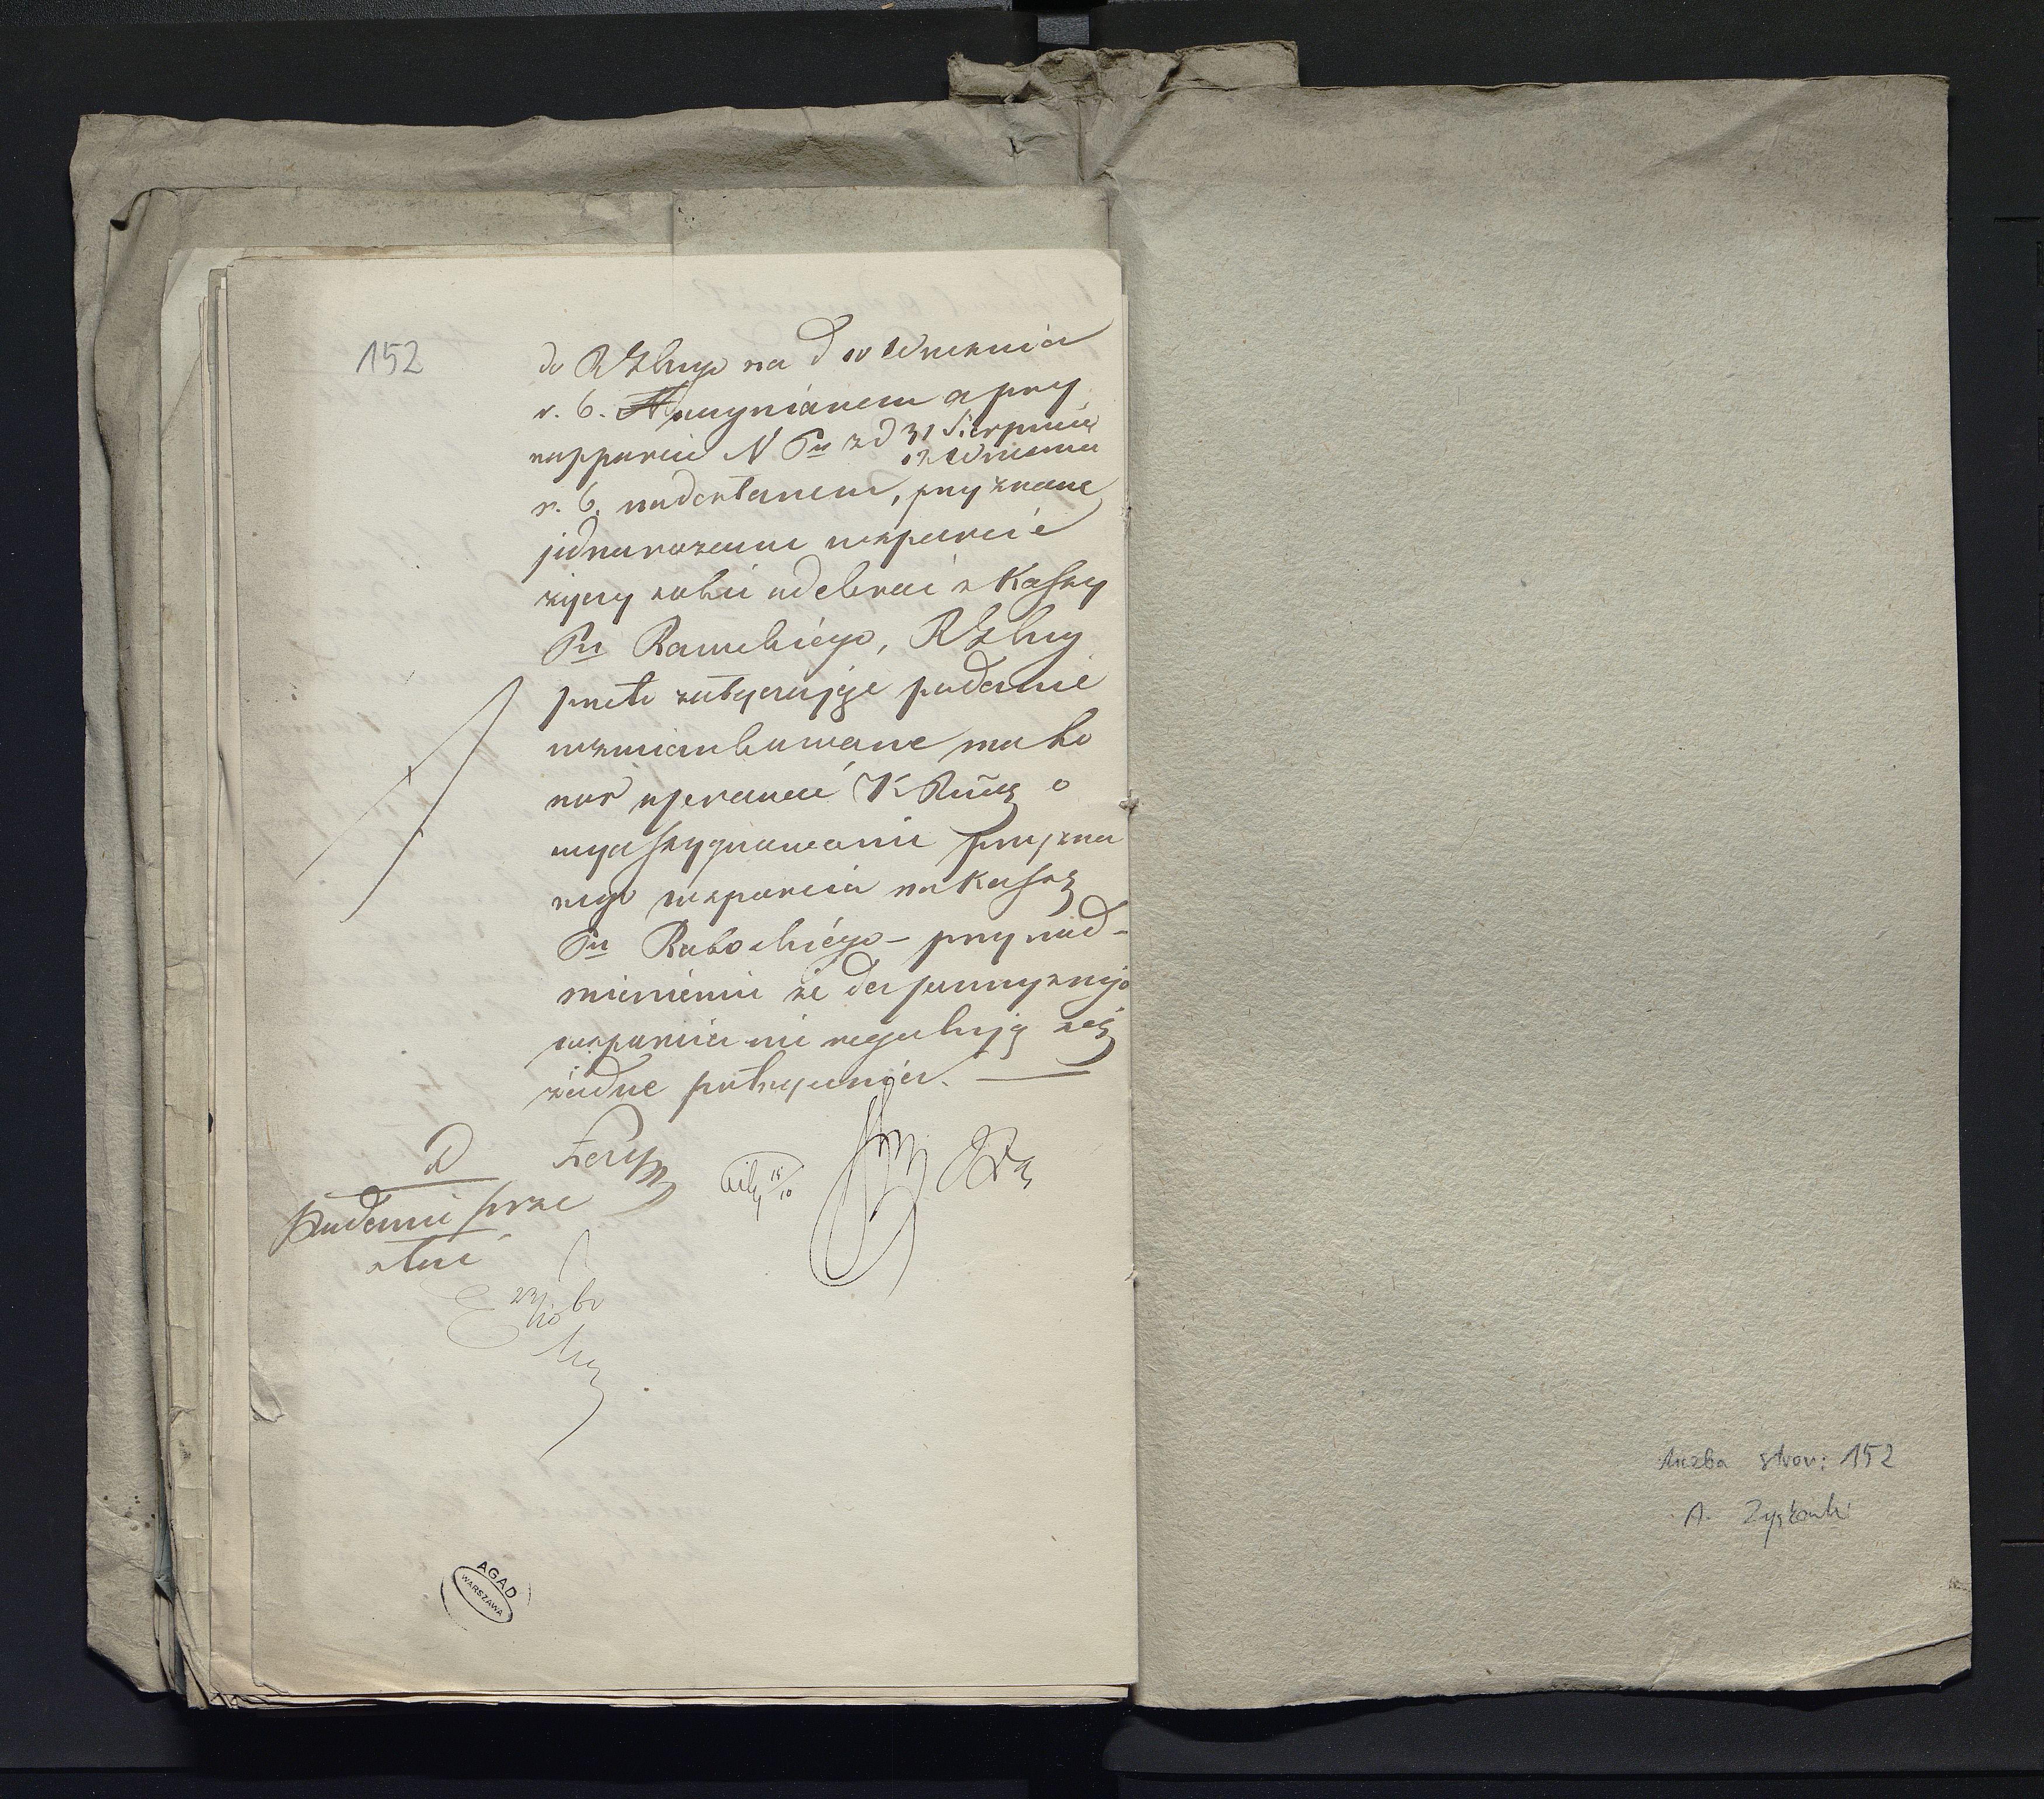 152
do RGlnego na d 10 Września
r. b. uczynionem a przy
rapporcie N Ptu z d 31 Sierpnia
12 Września
r. b. nadesłanem, przyznane
jednorazowe wsparcie
życzy sobie odebrać z Kassy
Ptu Rawskiego, RGlny
przeto załączając podanie
wzmiankowane ma ho
nor upraszać K o
wyassygnowanie przyzna
nego wsparcia na Kassę
Ptu Rawskiego - przy nad-
mienieniu że do powyższego
wsparcia nie regulują się
żadne potrącenia.
D
Podanie prze
słać
15/10
23/10 br
AGAD
WARSZAWA
liczba stron: 152
A.